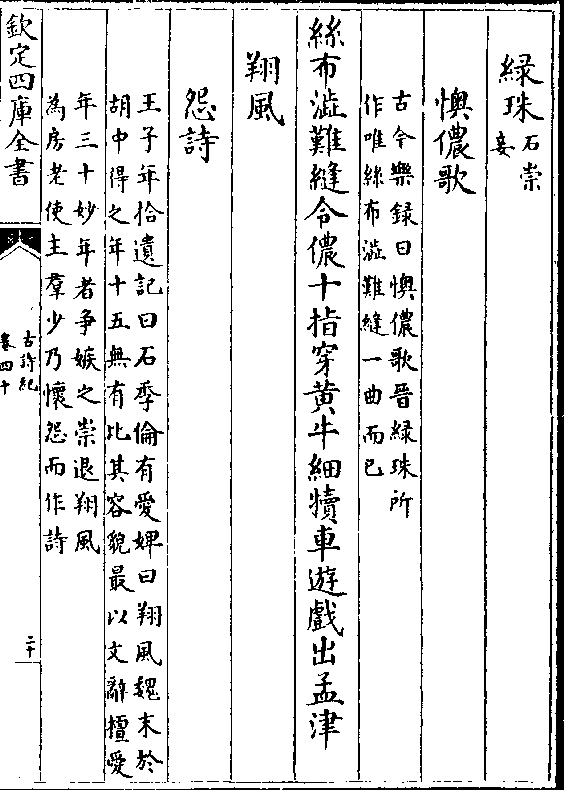 緑珠石崇
妾
懊儂歌
古今樂録曰懊儂歌晋緑珠所
作唯絲布澁難縫一曲而已
絲布澁難縫令儂十指穿黄牛細犢車遊戲出孟津
翔風
怨詩
王子年拾遺記曰石季倫有愛婢曰翔風魏末於
胡中得之年十五無有比其容貌最以文辭檀愛
年三十妙年者争嫉之崇退翔風
為房老使主羣少乃懷怨而作詩
欽定四庫全書
古詩紀
卷四十
二十